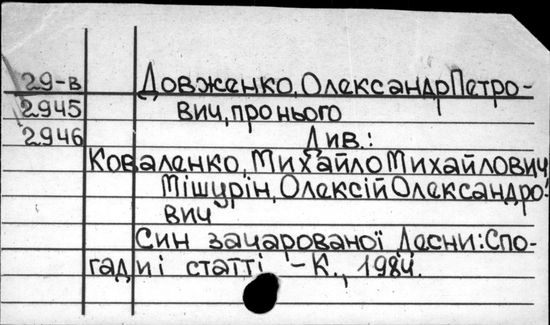 29-в Довженко, Олександр Петро-
2945 вич, про нього
2946 Див.:
Коваленко, Михайло Михайлович
Мішурін, Олексій Олександро-
вич
Син зачарованої Десни: Спо-
гади і статті - К., 1984.